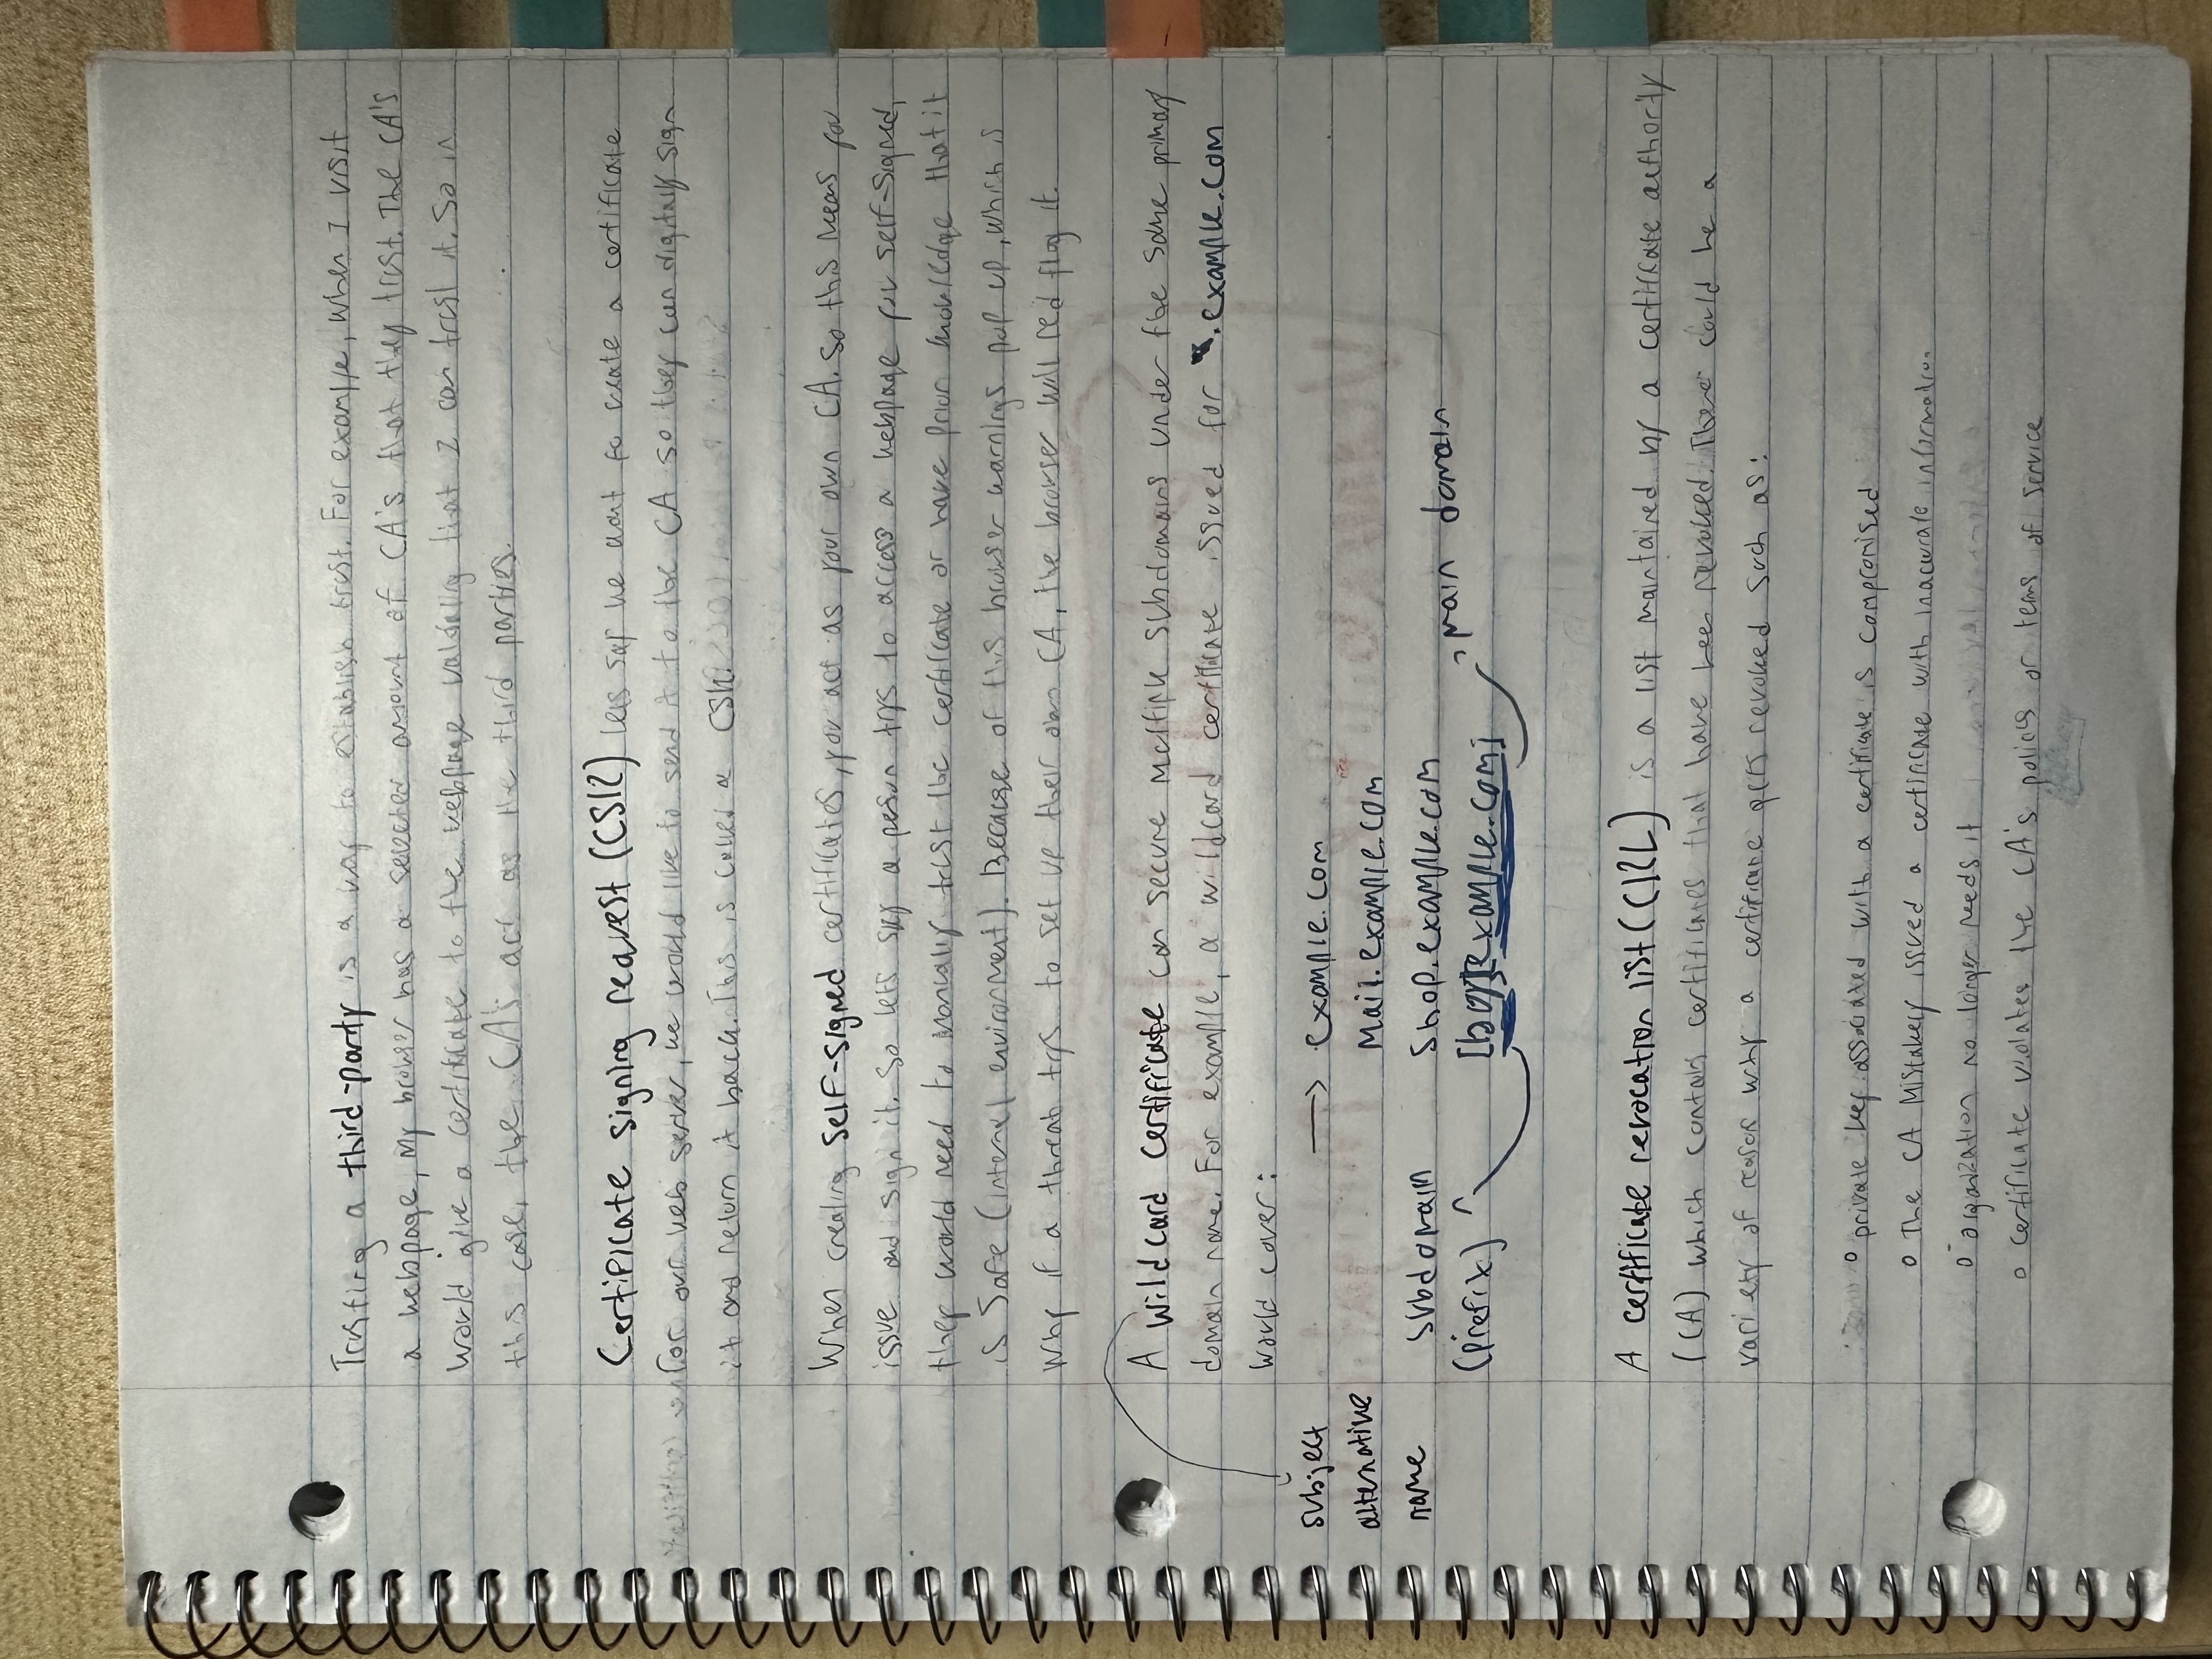 Trusting a third-party is a way to establish trust. For example, when I visit
a webpage, my browser has a selected amount of CA's that they trust. The CA's
would give a certificate to the webpage validating that I can trust it. So in
this case, the CA's act as the third parties.
Certificate signing request (CSR) lets say we want to create a certificate
for our web server, we would like to send it to the CA so they can digitally sign
it and return it back. This is called a CSR.
When creating self-signed certificates, you act as your own CA. So this means you
issue and sign it. So lets say a person trys to access a webpage you self-signed,
they would need to manually trust the certificate or have prior knowledge that it
is safe (internal environment). Because of this browser warnings pop up, which is
why if a threat trys to set up their own CA, the browser will red flag it.
A wildcard certificate can secure multiple subdomains under the same primary
domain name. For example, a wildcard certificate issued for *.example.com
would cover:
subject → example.com
alternative mail.example.com
name subdomain shop.example.com
main domain
(prefix) [example.com]
A certificate revocation list (CRL) is a list maintained by a certificate authority
(CA) which contains certificates that have been revoked. There could be a
variety of reason why a certificate gets revoked such as:
o private key associated with a certificate is compromised
o The CA mistakely issued a certificate with inaccurate information
o organization no longer needs it
o certificate violates the CA's policies or terms of service